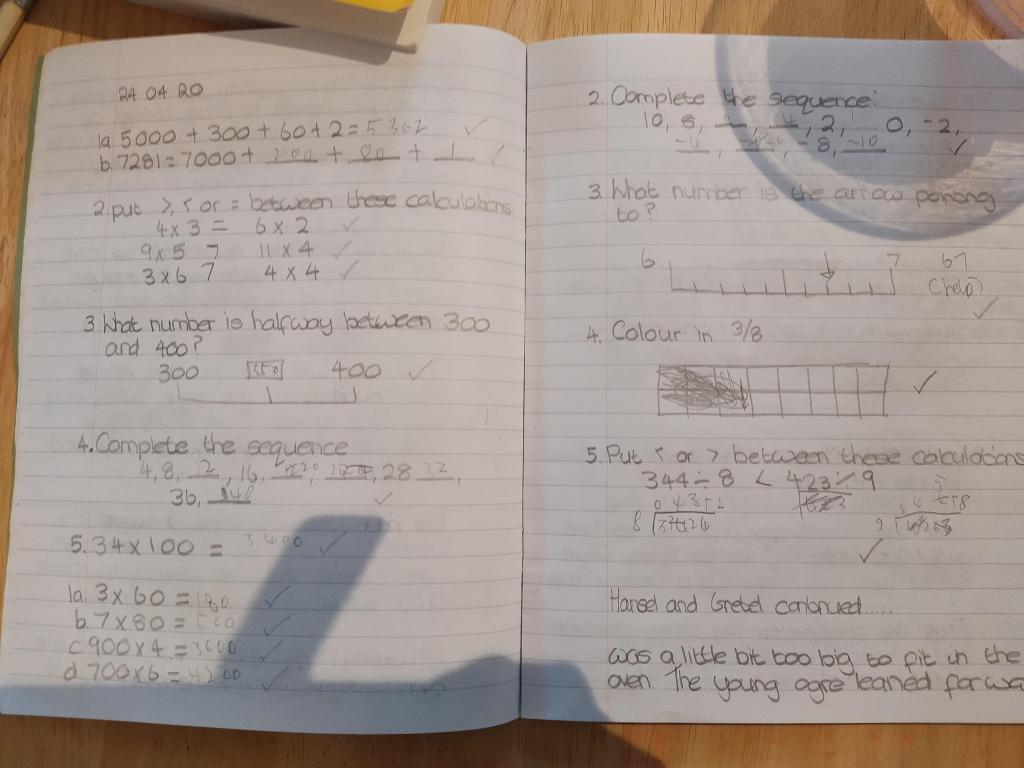 24 04 20
1a 5000 + 300 + 60 + 2 = 5362 ✓
b. 7281 = 7000 + 200 + 80 + 1 ✓
2. put >, < or = between these calculations.
4 x 3 = 6 x 2 ✓
9 x 5 > 11 x 4 ✓
3 x 6 > 4 x 4 ✓
3. What number is halfway between 300
and 400?
300 350 400 ✓
4. Complete the sequence
4, 8, 12, 16, 20, 28 32,
36, ✓
5. 34 x 100 = 3400 ✓
1a. 3 x 60 = 180 ✓
b. 7 x 80 = ✓
c. 900 x 4 = 3600 ✓
d. 700 x 6 = 4200 ✓
2. Complete the sequence:
10, 8, 4, 2, 0, -2,
-4, -8, -10 ✓
3. What number is the arrow pointing
to?
6 7 67
(help) ✓
4. Colour in 3/8
✓
5. Put < or > between these calculations
344 ÷ 8 < 423 ÷ 9
8
9
✓
Hansel and Gretel continued.....
was a little bit too big to fit in the
oven. The young ogre leaned forwa